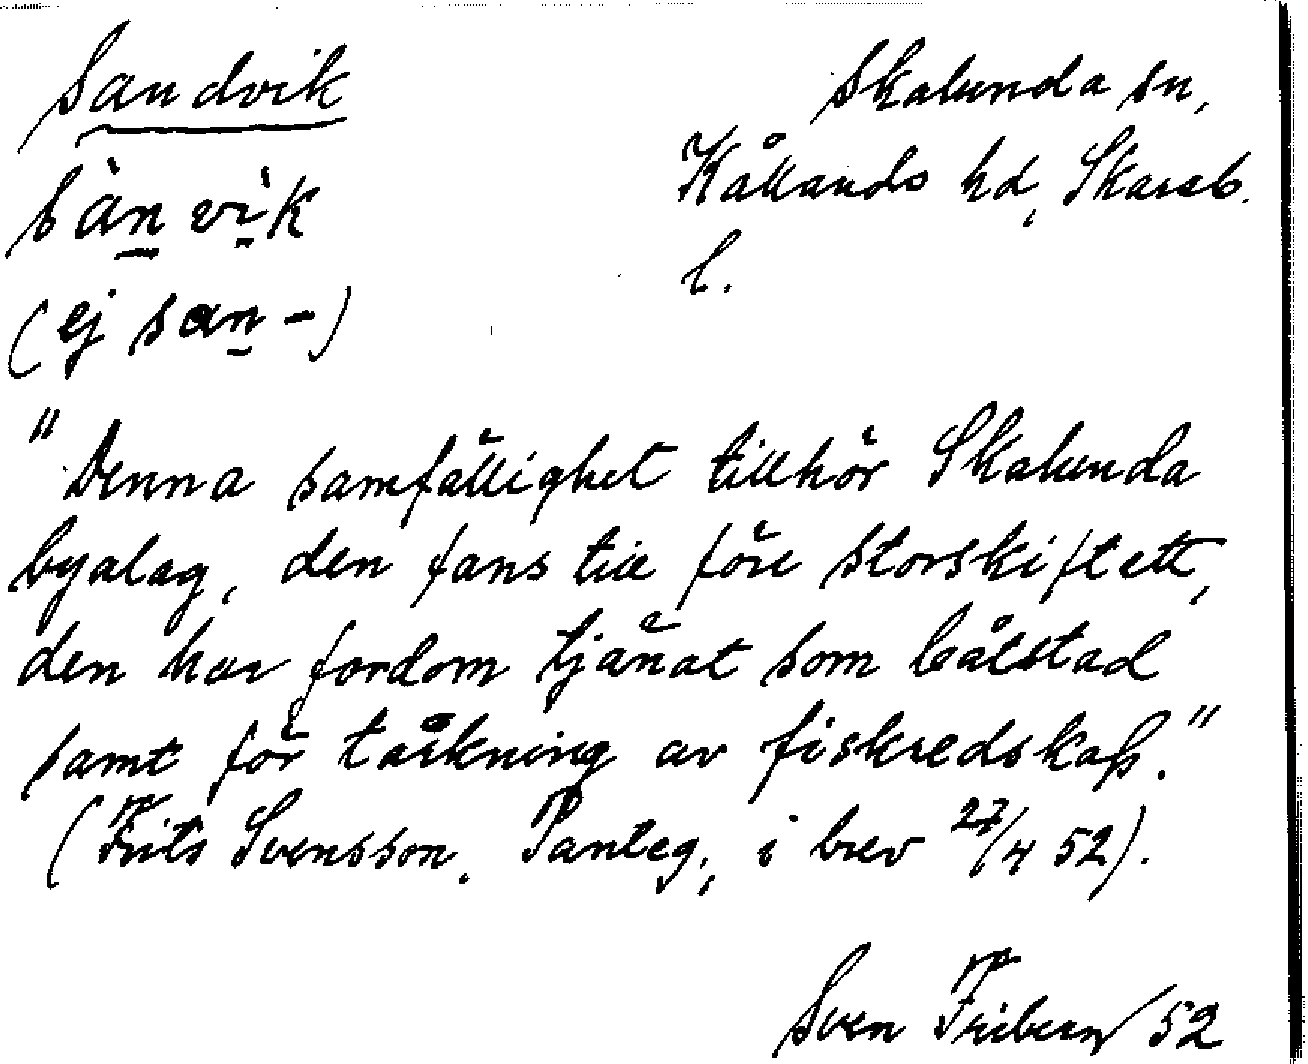 Sandvik
Skalunda sn,
Kållands hd, Skarab.
l.
sànvìk
(ej san-)
"Denna samfällighet tillhör Skalunda
byalag, den fans till före storskiftett,
den har fordom tjänat som båtstad
samt för torkning av fiskredskap."
(Frits Svensson. Panteg, i brev 27/4 52).
Sven Friberg 52